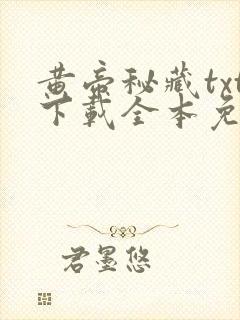 黄帝秘藏txt
下载全本免
君墨悠